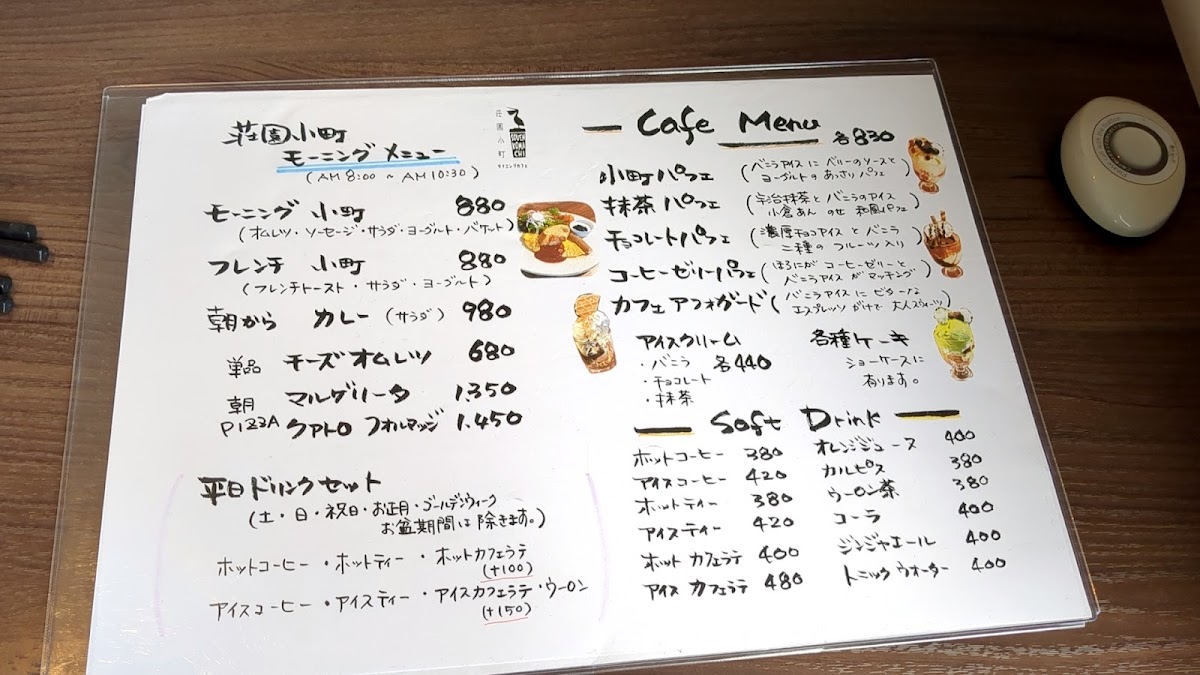 荘園小町
モーニング メニュー
(AM 8:00 ~ AM 10:30)
荘園小町
モーニング 小町 880
(オムレツ・ソーセージ・サラダ・ヨーグルト・バケット)
フレンチ 小町 880
(フレンチトースト・サラダ・ヨーグルト)
朝から カレー (サラダ) 980
単品 チーズオムレツ 680
朝 マルゲリータ 1.350
PIZZA クアトロ フォルマッジ 1.450
平日ドリンクセット
(土・日・祝日・お正月・ゴールデンウィーク
お盆期間は除きます。)
ホットコーヒー・ホットティー・ホットカフェラテ
(+100)
アイスコーヒー・アイスティー・アイスカフェラテ・ウーロン
(+150)
Cafe Menu 各830
小町パフェ (バニラアイスに ベリーのソースと
ヨーグルトの あっさりパフェ)
抹茶パフェ (宇治抹茶と バニラのアイス
小倉あん のせ 和風パフェ)
チョコレートパフェ (濃厚チョコアイス と バニラ
二種の フルーツ入り)
コーヒーゼリーパフェ (ほろにが コーヒーゼリーと
バニラアイス がマッチング)
カフェアフォガード (バニラアイスに ビターな
エスプレッソがけで 大人スウィーツ)
アイスクリーム
・バニラ 各440
・チョコレート
・抹茶
各種ケーキ
ショーケースに
有ります。
Soft Drink
ホットコーヒー 380
アイスコーヒー 420
ホットティー 380
アイスティー 420
ホット カフェラテ 400
アイス カフェラテ 480
オレンジジュース 400
カルピス 380
ウーロン茶 380
コーラ 400
ジンジャエール 400
トニックウォーター 400